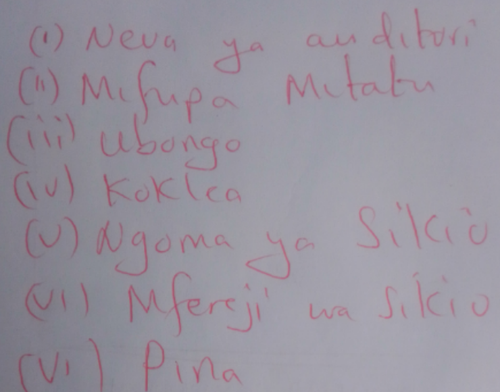 (i) Neva ya auditori
(ii) Mifupa Mitatu
(iii) Ubongo
(iv) Koklea
(v) Ngoma ya Sikio
(vi) Mfereji wa Sikio
(vi) Pina